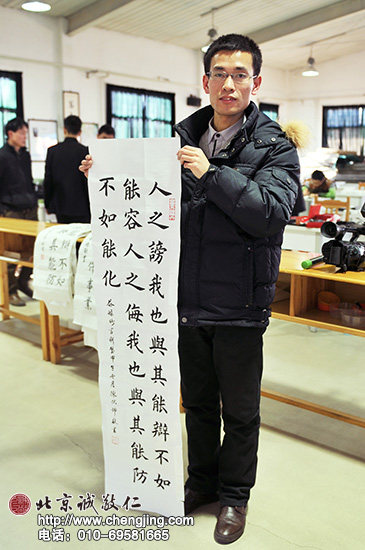 人之謗我也與其能辯不如
能容人之侮我也與其能防
不如能化
辯不如
其能防
北京誠敬仁
http://www.chengjing.com
电话：010-69581665